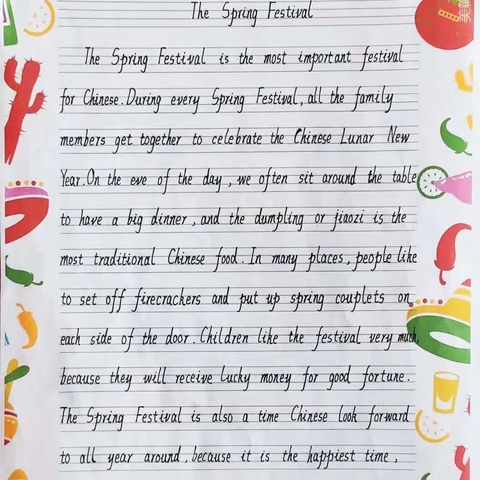 The Spring Festival
The Spring Festival is the most important festival
for Chinese.During every Spring Festival, all the family
members get together to celebrate the Chinese Lunar New
Year.On the eve of the day, we often sit around the table
to have a big dinner, and the dumpling or jiaozi is the
most traditional Chinese food. In many places, people like
to set off firecrackers and put up spring couplets on
each side of the door. Children like the festival very much,
because they will receive lucky money for good fortune.
The Spring Festival is also a time Chinese look forward
to all year around, because it is the happiest time,